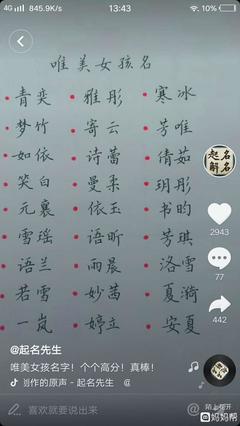 4G 13:43 10%
唯美女孩名
青奕 雅彤 寒冰
梦竹 寄云 芳唯
如依 诗蕾 倩茹
笑白 曼柔 玥彤
元裹 依玉 书昀
雪瑶 语昕 芳琪
语兰 雨晨 洛雪
若雪 妙菡 夏漪
一岚 婷立 安夏
起名
解名
2943
77
@起名先生
唯美女孩名字！个个高分！真棒！
创作的原声 - 起名先生
陌上花开
喜欢就要说出来
妈妈帮